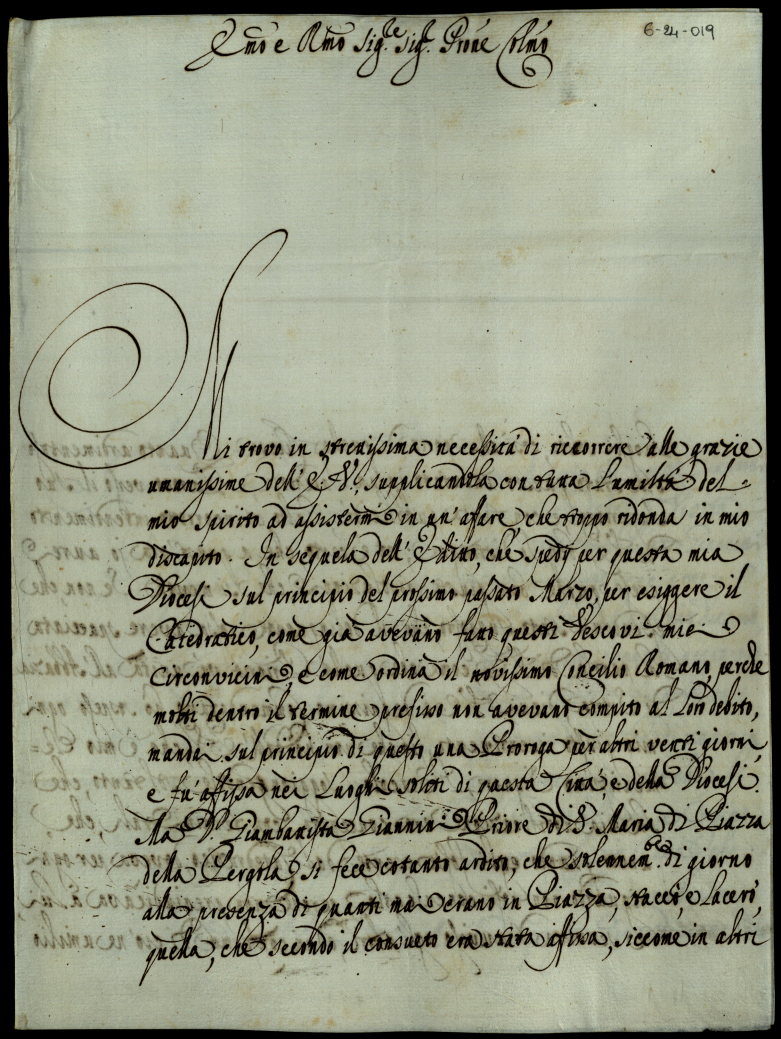 6-24-019
Emo e Rmo Sig.re Sig.r Prone Colmo
Mi trovo in strettissima necessità di riccorrere alle grazie
umanissime dell' E. V., supplicandola con tutta l'umiltà del
mio spirito ad assistermi in un' affare che troppo ridonda in mio
discapito. In sequela dell' Editto, che spedij per questa mia
Diocesi sul principio del prossimo passato Marzo, per esiggere il
Catedratico, come già avevano fatto questi Vescovi miei
Circonvicini, e come ordina il novissimo Concilio Romano, perche
molti dentro il termine prefisso non avevano compito al loro debito,
mandai sul principio di questo una Proroga per altri venti giorni,
e fu affissa nei Luoghi soliti di questa Città, e della Diocesi.
Ma D. Giambattista Giannini Priore di S. Maria di Piazza
della Pergola si fece cotanto ardito, che solennem.te di giorno
alla presenza di quanti mai erano in Piazza, staccò, e lacerò,
quella, che secondo il consueto era stata affissa, siccome in altri